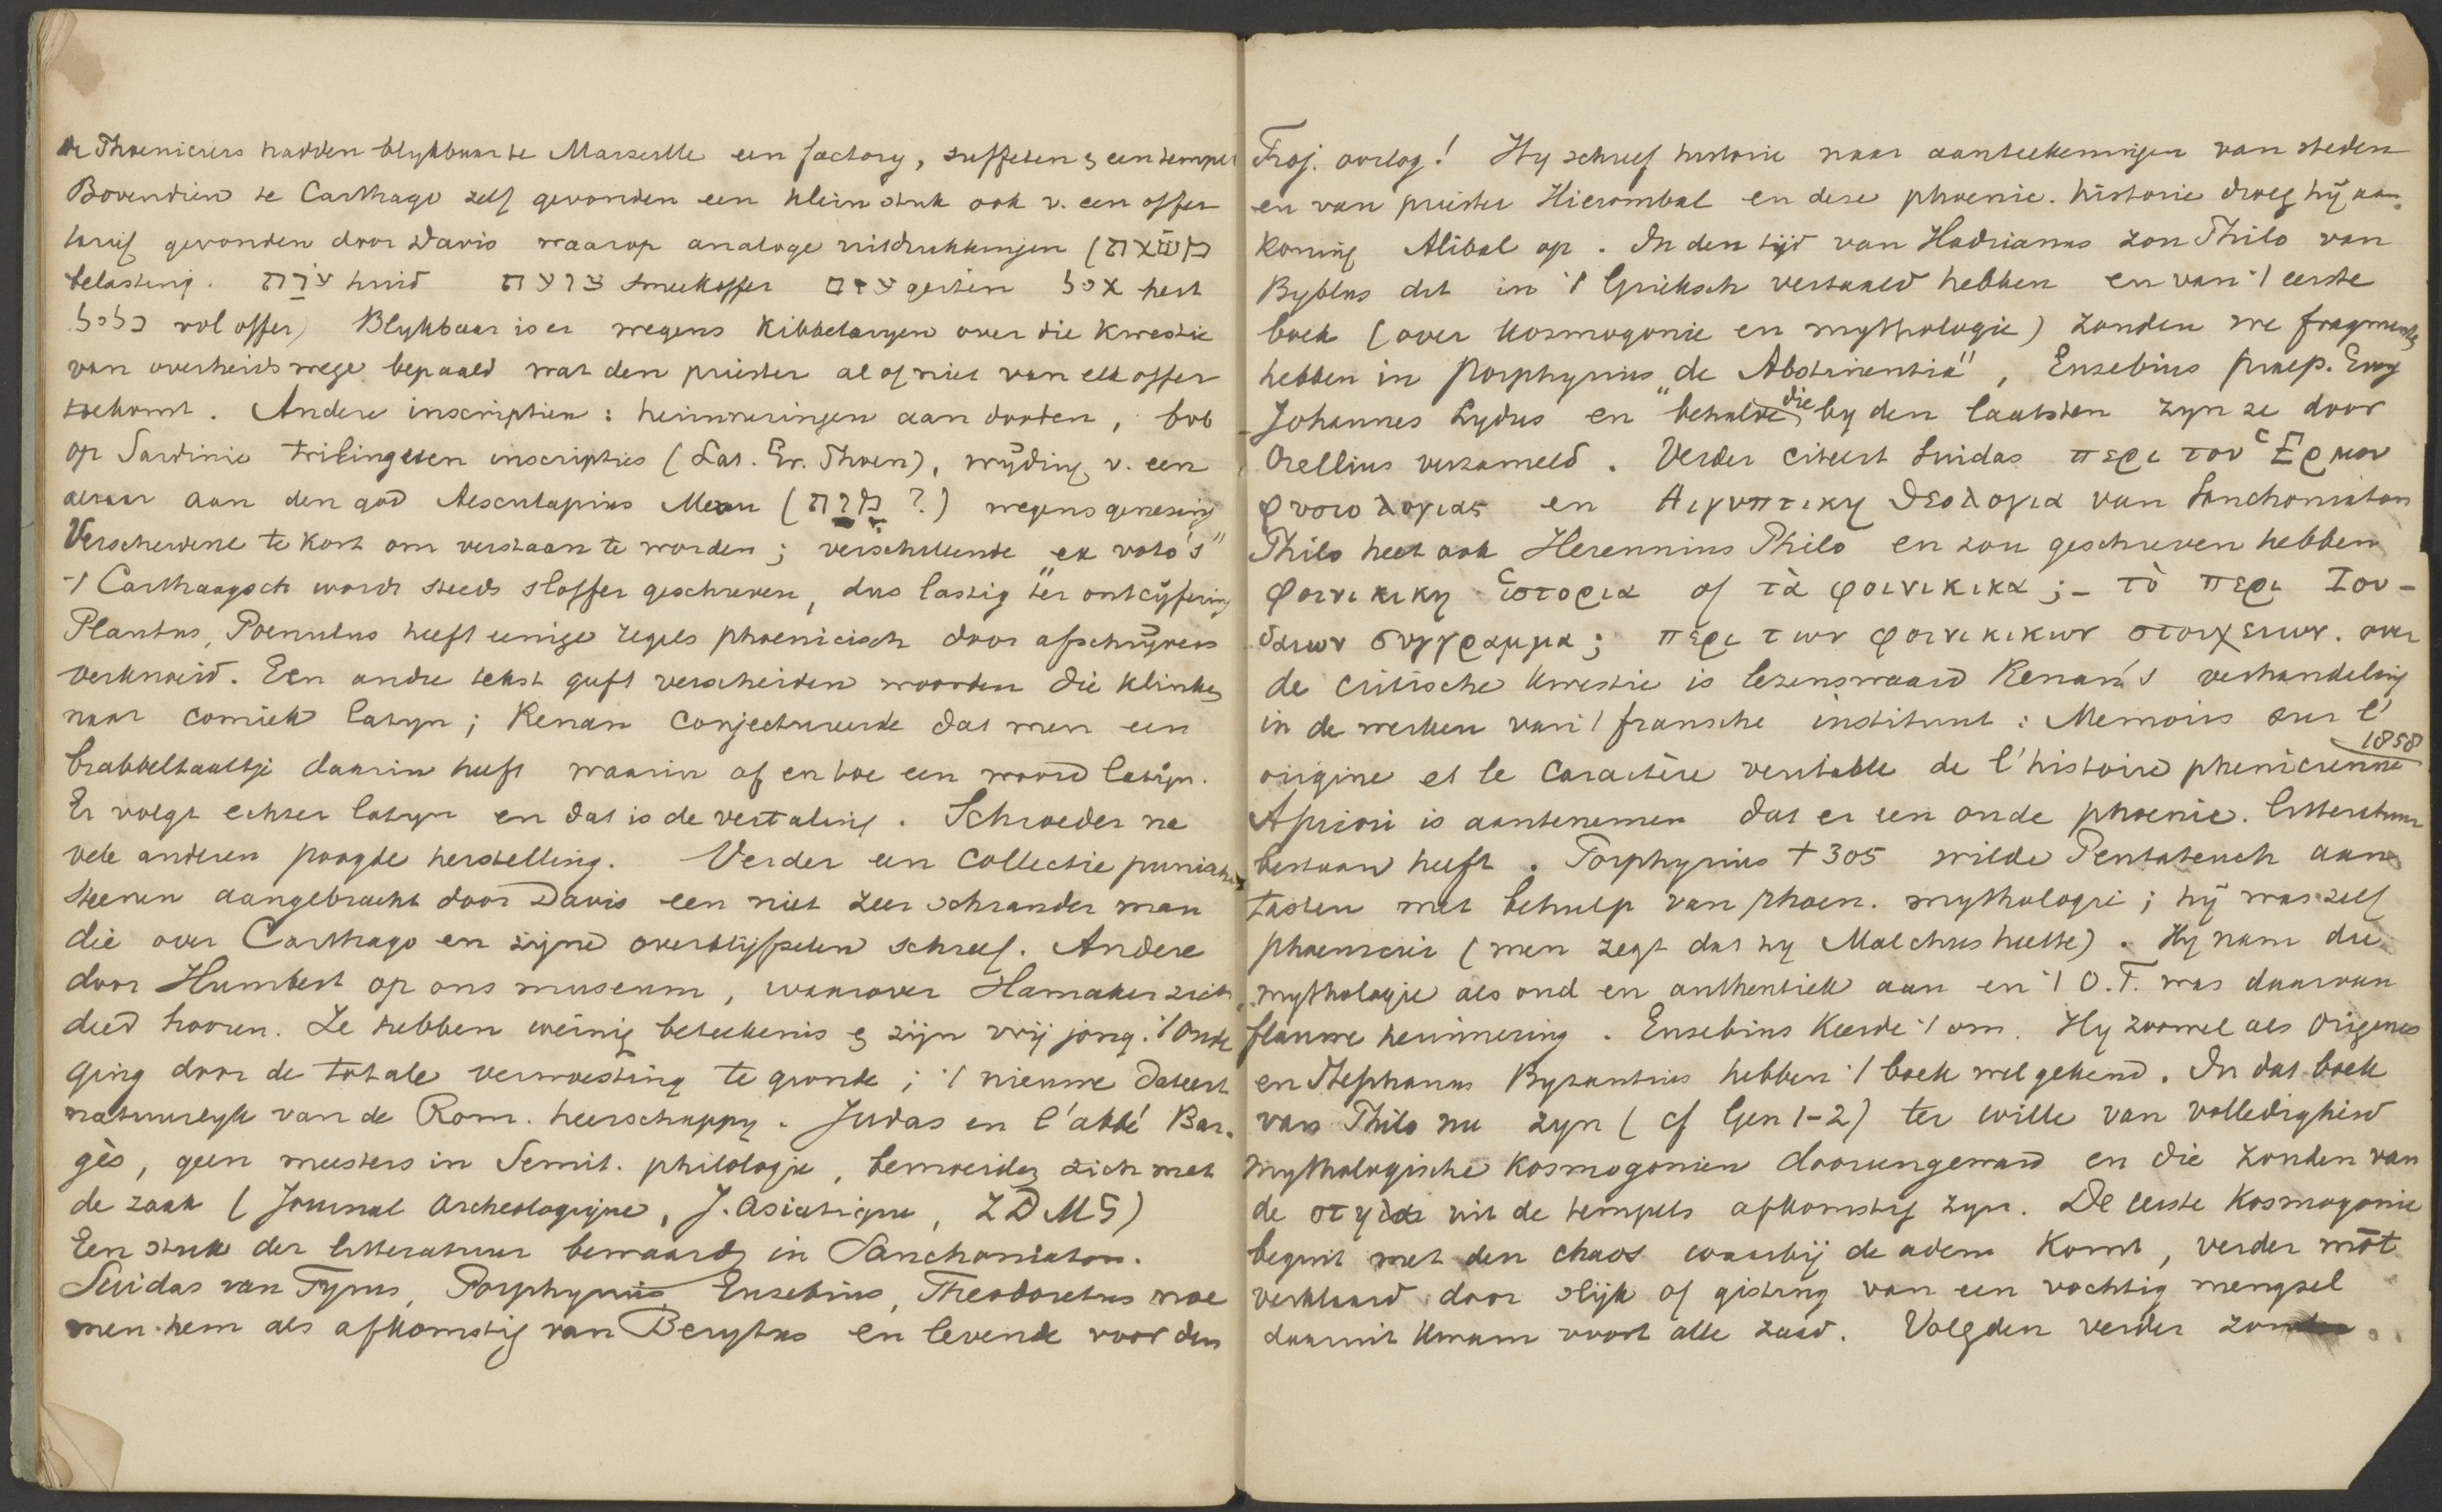 de Phoeniciers hadden blykbaar te Marseille een factory, suffeten & een tempel
Bovendien te Carthago zelf gevonden een klein stuk ook v. een offer
tarief gevonden door Davis waarop analoge uitdrukkingen (משאת
belasting. ערת huid צועת smeekoffer עזם geiten איל hert
כליל vol offer) Blykbaar is er wegens kibbelaryen over die kwestie
van overheids wege bepaald wat den priester al of niet van elk offer
toekomt. Andere inscriptien: herinneringen aan dooden,
op Sardinie trilinguen inscripties (Lat. Gr. Phoen), wyding v. een
altaar aan den god Aesculapius (מרח ?) wegens genezing
Verscheidene te kort om verstaan te worden; verschillende "ex voto's"
't Carthaagsch wordt steeds sloffer geschreven, dus lastig ter ontcijfering
Plautus, Poenulus heeft eenige regels phoenicisch door afschrijvers
verknoeid. Een andre tekst geeft verscheiden woorden die klinken
naar comiek latyn; Renan conjectureerde dat men een
brabbeltaaltje daarin heeft waarin af en toe een woord latijn.
Er volgt echter latyn en dat is de vertaling. Schroeder na
vele anderen poogde herstelling. Verder een collectie punische
steenen aangebracht door Davis een niet zeer schrander man
die over Carthago en zijne overblijfselen schreef. Andere
door Humbert op ons museum, waarover Hamaker zich
deed hooren. Ze hebben weinig beteekenis & zijn vrij jong. 't Oude
ging door de totale verwoesting te gronde; 't nieuwe dateert
natuurlyk van de Rom. heerschappy. Judas en l'abbé Bar-
gès, geen meesters in Semit. philologie, bemoeiden zich met
de zaak (Journal Archeologique, J. asiatique, ZDMG)
Een stuk der litteratuur bewaard in Sanchoniaton.
Suidas van Tyrus, Porphyrius, Eusebius, Theodoretus noe
men hem als afkomstig van Berytus en levende voor den
Troj. oorlog! Hy schreef historie naar aanteekeningen van steden
en van priester Hierombal en deze phoenic. historie droeg hij aan
koning Abibal op. In den tijd van Hadrianus zou Philo van
Byblus dit in 't Grieksch vertaald hebben en van 't eerste
boek (over kosmogonie en mythologie) zouden we fragmenten
hebben in Porphyrius "de Abstinentia", Eusebius Praep. Evg
Johannes Lydus en behalve die by den laatsten zyn ze door
Orellius verzameld. Verder citeert Suidas περι του Ἑρμου
φυσιολογιας en Αιγυπτικη θεολογια van Sanchoniaton
Philo heet ook Herennius Philo en zou geschreven hebben
φοινικικη ἱστορια of τὰ φοινικικα; – τὸ περι Ιου-
δαιων συγγραμμα; περι των φοινικικων στοιχειων. over
de critische kwestie is lezenswaard Renan's verhandeling
in de werken van 't fransche instituut: Memoires sur l'
origine et le caractère veritable de l'histoire phenicienne 1858
Apriori is aantenemen dat er een oude phoenic. litteratuur
bestaan heeft. Porphyrius † 305 wilde Pentateuch aan
tasten met behulp van phoen. mythologie; hij was zelf
phoenicier (men zegt dat hy Malchus heette). Hy nam die
mythologie als oud en authentiek aan en 't O.T. was daarvan
flauwe herinnering. Eusebius keerde 't om. Hy zoowel als Origenes
en Stephanus Byzantius hebben 't boek wel gekend. In dat boek
van Philo nu zyn (cf Gen 1-2) ter wille van volledigheid
mythologische kosmogonien dooreengeward en die zouden van
de στηλαι uit de tempels afkomstig zyn. De eerste kosmogonie
begint met den chaos waarbij de adem komt, verder mōt
verklaard door slijk of gisting van een vochtig mengsel
daaruit kwam voort alle zaad. Volgden verder